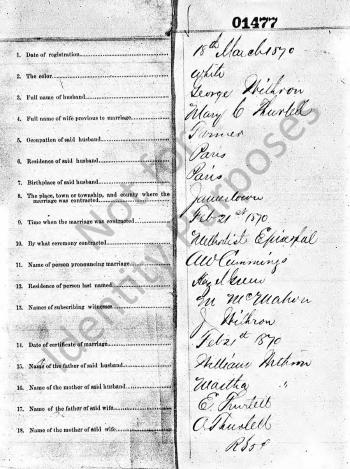 01477
1. Date of registration 18th March 1870
2. The color White
3. Full name of husband George Withron
4. Full name of wife previous to marriage Mary C Thurtell
5. Occupation of said husband Farmer
6. Residence of said husband Paris
7. Birthplace of said husband Paris
8. The place, town or township, and county where the marriage was contracted Jamestown
9. Time when the marriage was contracted Feb 21st 1870
10. By what ceremony contracted Methodist Episcopal
11. Name of person pronouncing marriage AW Cummings
12. Residence of person last named
13. Names of subscribing witnesses M McMahon
J Withron
14. Date of certificate of marriage Feb 21st 1870
15. Name of the father of said husband William Withron
16. Name of the mother of said husband Martha "
17. Name of the father of said wife E. Thurtell
18. Name of the mother of said wife O. Thurtell
Not for Identity Purposes